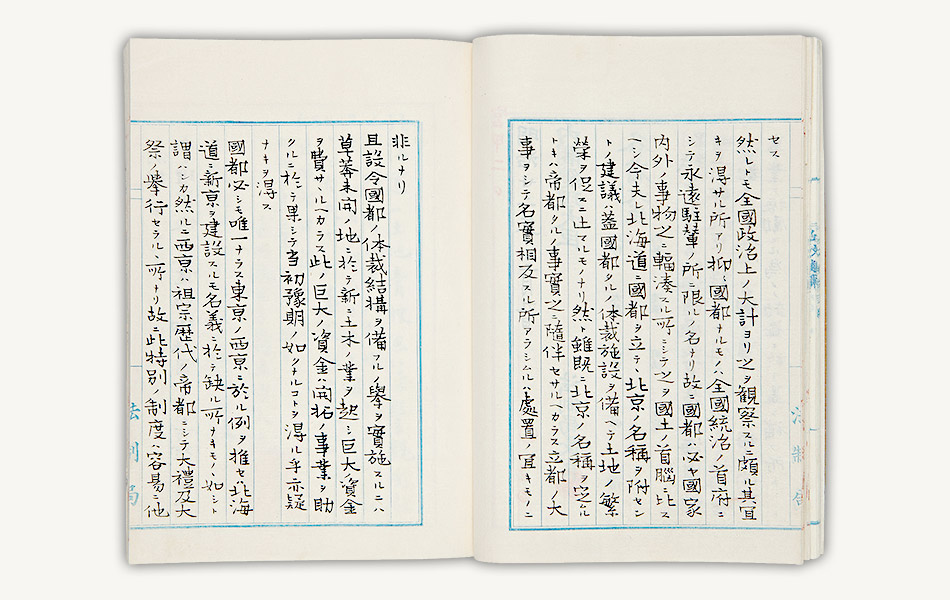 セス
然レトモ全國政治上ノ大計ヨリ之ヲ觀察スルニ頗ル其宜
キヲ得サル所アリ抑モ國都ナルモノハ全國統治ノ首府ニ
シテ永遠駐輦ノ所ニ限ルノ名ナリ故ニ國都ハ必ヤ國家
内外ノ事物之ニ輻湊スル所ニシテ之ヲ國土ノ首腦ニ比ス
ヘシ今夫レ北海道ニ國都ヲ立テ、北京ノ名稱ヲ附セン
トノ建議ハ蓋國都タルノ体裁施設ヲ備ヘテ土地ノ繁
榮ヲ促スニ止マルモノナリ然ト雖既ニ北京ノ名稱ヲ定ムル
トキハ帝都タルノ事實之ニ隨伴セサルヘカラス立都ノ大
事ヲシテ名實相反スル所アラシムルハ處置ノ宜キモノニ
非ルナリ
且設令國都ノ体裁結構ヲ備フルノ擧ヲ實施スルニハ
草莽未開ノ地ニ於テ新ニ土木ノ業ヲ起シ巨大ノ資金
ヲ費サヽルヘカラス此ノ巨大ノ資金ハ開拓ノ事業ヲ助
クルニ於テ果シテ當初豫期ノ如クナルコトヲ得ル乎亦疑
ナキヲ得ス
國都必シモ唯一ナラス東京ノ西京ニ於ル例ヲ推セハ北海
道ニ新京ヲ建設スルモ名義ニ於テ缺ル所ナキモノヽ如シト
謂ハンカ然ルニ西京ハ祖宗歴代ノ帝都ニシテ大禮及大
祭ノ擧行セラルヽ所ナリ故ニ此特別ノ制度ハ容易ニ他
法制局